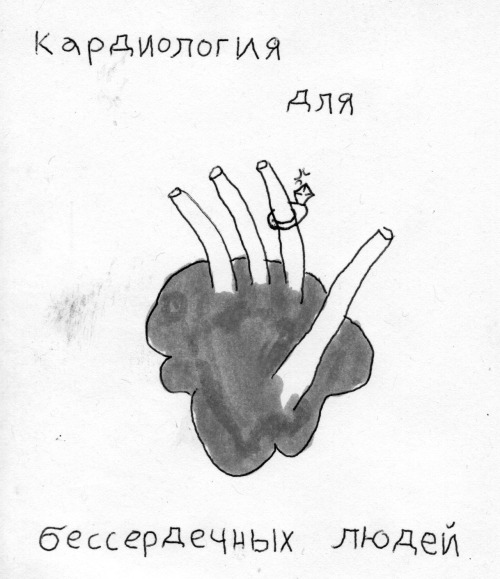 Кардиология
для
бессердечных людей